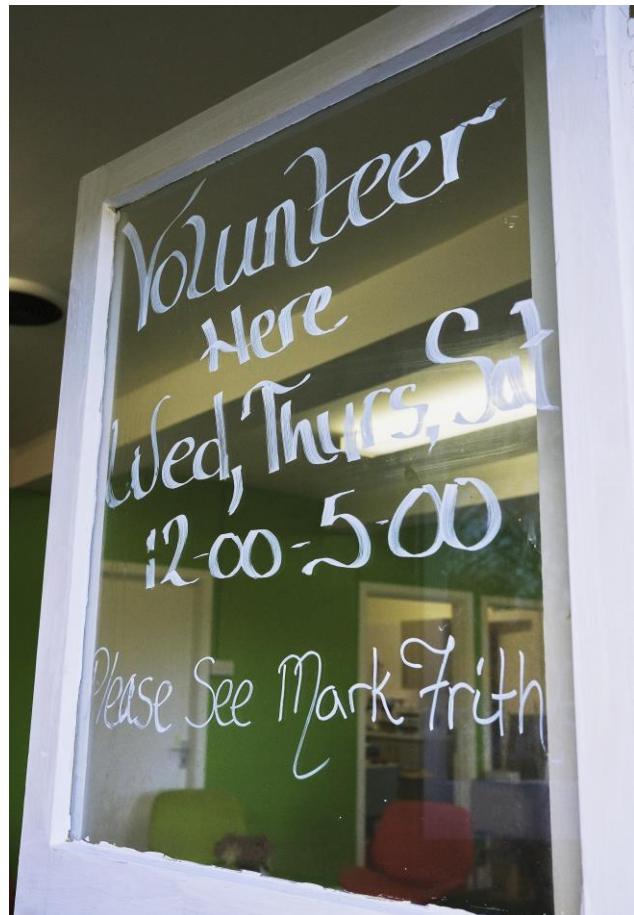 Volunteer
Here
Wed, Thurs, Sat
12-00-5-00
Please See Mark Frith